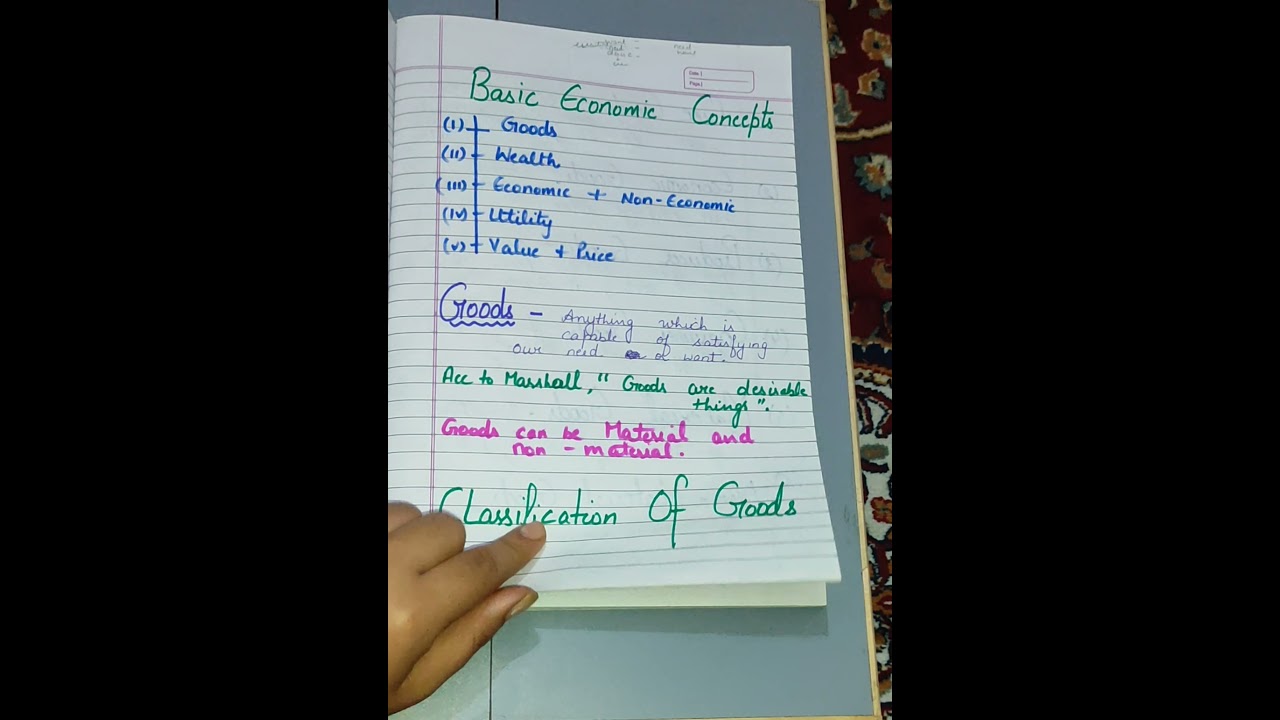 need
want
Date
Page
Basic Economic Concepts
(I) Goods
(II) Wealth
(III) Economic + Non-Economic
(IV) Utility
(V) Value + Price
Goods - Anything which is
capable of satisfying
our need or want.
Acc to Marshall, " Goods are desirable
things".
Goods can be Material and
non - material.
Classification Of Goods